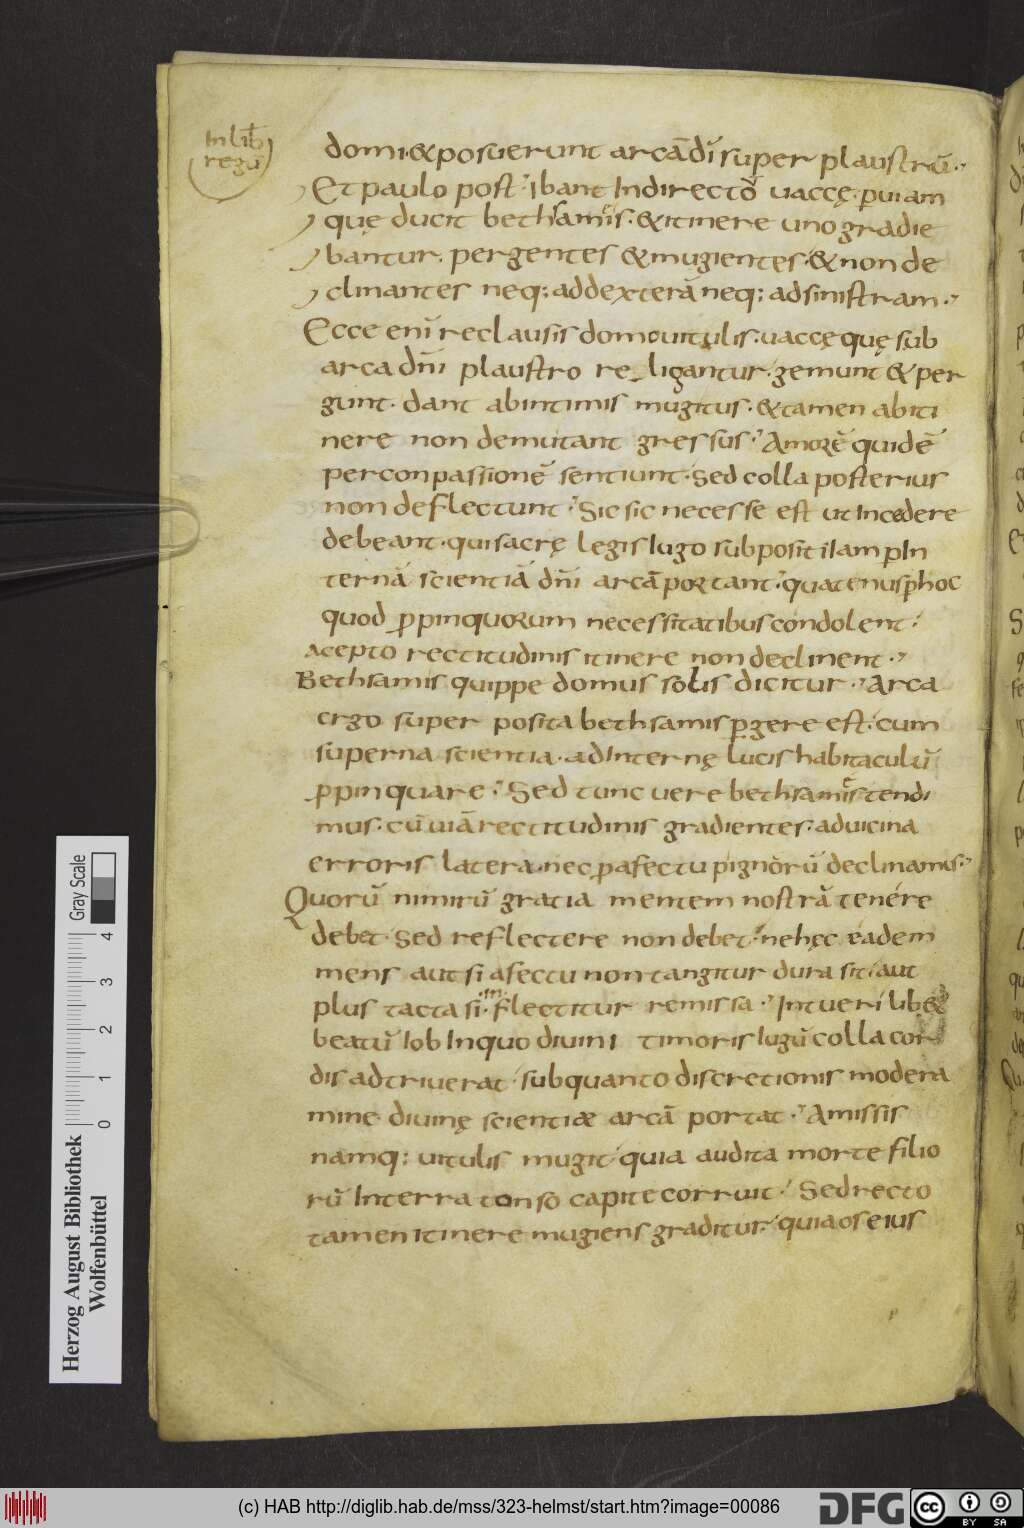 In lib̄
regū
domi·&posuerunt arcā dn̄i super plaustrū·,
Et paulo post· Ibant Indirectō uaccę p uiam
quę ducit bethsamis·&itinere uno gradie
bantur· pergentes &mugientes·&non de
clinantes neq; addexterā neq; adsinistram·,
Ecce enī reclausis domo uitulis·uaccę quę sub
arca dn̄i plaustro religantur·gemunt & per
gunt· dant abintimis mugitus·&tamen abiti
nere non demutant gressus· Amorē quidē
perconpassionē sentiunt·sed colla posterius
non deflectunt· Sic sic necesse est ut Incedere
debeant·qui sacrę legis Iugo subpositi Iam p In
ternā scientiā dn̄i arcā portant·quatenus p hoc
quod ppinquorum necessitatibus condolent·
Acepto rectitudinis itinere non declinent·,
Bethsamis quippe domus solis dicitur· Arca
ergo super posita bethsamis pgere est·cum
superna scientia·ad Internę lucis habitaculū
ppinquare· Sed tunc uere bethsamis tendi
mus·cū uiā rectitudinis gradientes·aduicina
erroris latera·nec p afectu pignorū declinamus·,
Quorū nimirū gratia mentem nostrā tenere
debet·Sed reflectere non debet·ne hęc eadem
mens aut si afectu non tangitur dura sit·aut
plus tacta si·in·flectitur remissa· Intueri lib&
beatū Iob Inquo diuini timoris Iugū colla cor
dis adtriuerat·sub quanto discretionis modera
mine diuinę scientiæ arcā portat· Amissis
namq; uitulis mugit·quia audita morte filio
rū Interra tonso capite corruit· Sed recto
tamen itinere mugiens graditur·quia os eius
Gray Scale
4
3
2
1
0
Herzog August Bibliothek
Wolfenbüttel
(c) HAB http://diglib.hab.de/mss/323-helmst/start.htm?image=00086
DFG
cc
BY SA